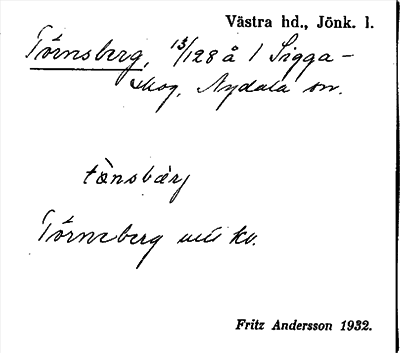 Västra hd., Jönk. l.
Törnsberg, 13/128 å 1 Sigga-
skog, Nydala sn.
tə̀nsbærj
Törneberg uti kv.
Fritz Andersson 1932.